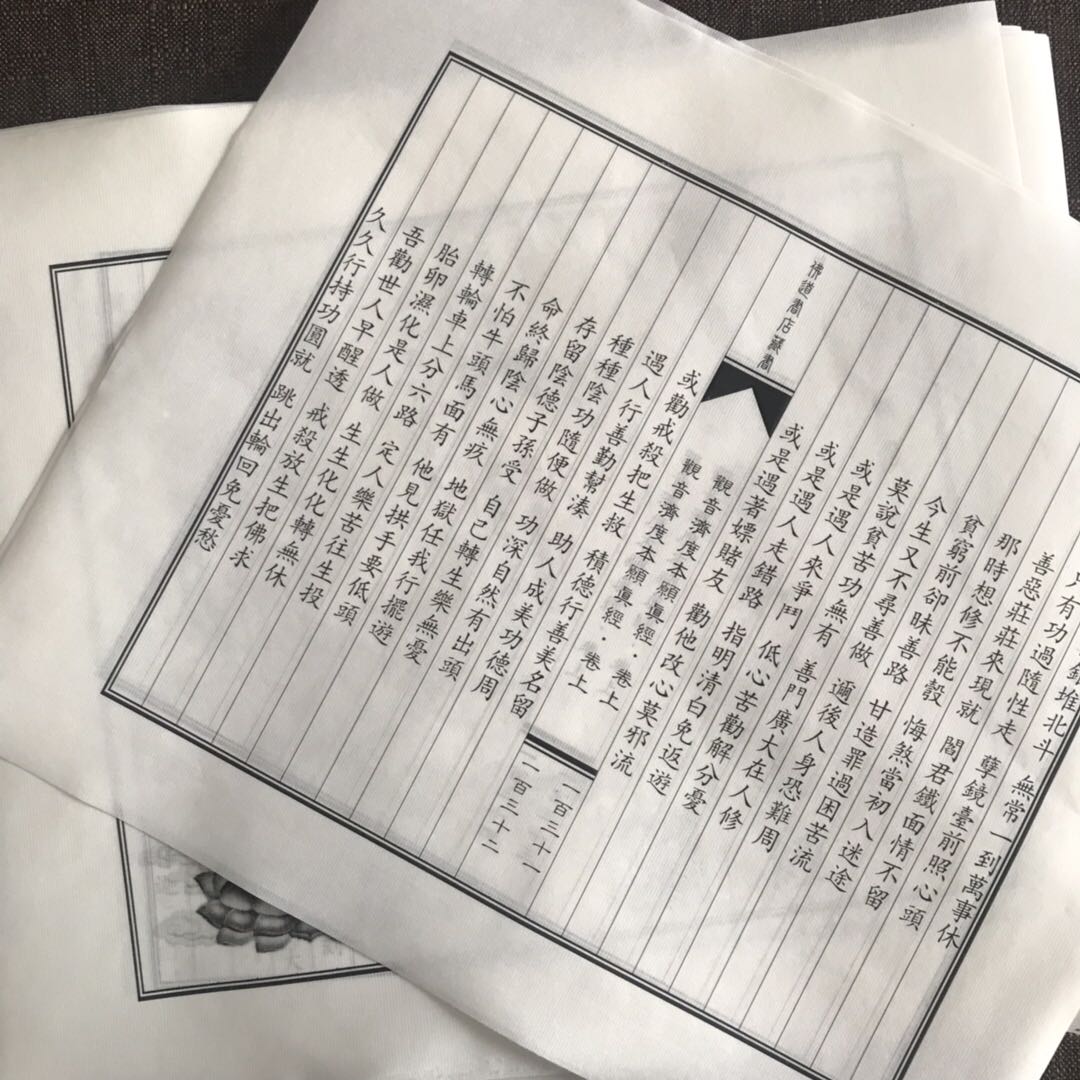 錢堆北斗 無常一到萬事休
有功過隨性走 孽鏡臺前照心頭
善惡莊莊來現就 閻君鐵面情不留
那時想修不能彀 悔煞當初入迷途
貧窮前卻昧善路 甘造罪過困苦流
今生又不尋善做 邇後人身恐難周
莫說貧苦功無有 善門廣大在人修
或是遇人來爭鬥 低心苦勸解分憂
或是遇人走錯路 指明清白免返遊
或是遇著嫖賭友 勸他改心莫邪流
佛道書店藏書
觀音濟度本願眞經·卷上
一百三十一
觀音濟度本願眞經·卷上
一百三十二
或勸戒殺把生救 積德行善美名留
遇人行善勤幫湊 助人成美功德周
種種陰功隨便做 功深自然有出頭
存留陰德子孫受 自己轉生樂無憂
命終歸陰心無疚 地獄任我行擺遊
不怕牛頭馬面有 他見拱手要低頭
轉輪車上分六路 定人樂苦往生投
胎卵濕化是人做 生生化化轉無休
吾勸世人早醒透 戒殺放生把佛求
久久行持功圓就 跳出輪回免憂愁